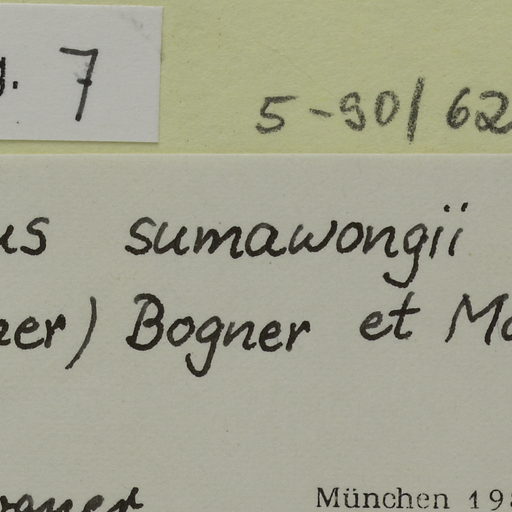 g. 7
5-90/62
us sumawongii
ner) Bogner et Ma
ogner
München 198